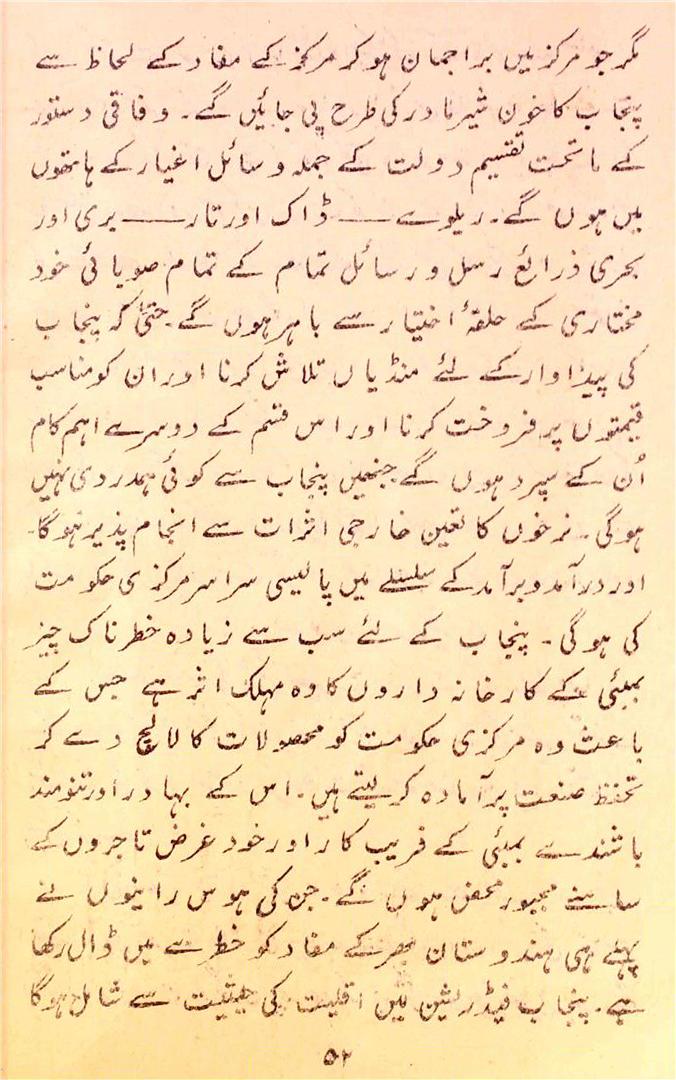 مگر جو مرکز میں براجمان ہو کر مرکز کے مفاد کے لحاظ سے
پنجاب کا خون شیرِ مادر کی طرح پی جائیں گے۔ وفاقی دستور
کے ماتحت تقسیم دولت کے جملہ وسائل اغیار کے ہاتھوں
میں ہوں گے۔ ریلوے — ڈاک اور تار — بری اور
بحری ذرائع رسل و رسائل تمام کے تمام صوبائی خود
مختاری کے حلقۂ اختیار سے باہر ہوں گے۔ حتیٰ کہ پنجاب
کی پیداوار کے لئے منڈیاں تلاش کرنا اور ان کو مناسب
قیمتوں پر فروخت کرنا اور اس قسم کے دوسرے اہم کام
اُن کے سپرد ہوں گے جنھیں پنجاب سے کوئی ہمدردی نہیں
ہوگی۔ نرخوں کا تعین خارجی اثرات سے انجام پذیر ہوگا۔
اور درآمد و برآمد کے سلسلے میں پالیسی سراسر مرکزی حکومت
کی ہوگی۔ پنجاب کے لئے سب سے زیادہ خطرناک چیز
بمبئی کے کارخانہ داروں کا وہ مہلک اثر ہے جس کے
باعث وہ مرکزی حکومت کو محصولات کا لالچ دے کر
تحفظ صنعت پر آمادہ کر لیتے ہیں۔ اس کے بہادر اور تنومند
باشندے بمبئی کے فریب کار اور خود غرض تاجروں کے
سامنے مجبور محض ہوں گے۔ جن کی ہوس رانیوں نے
پہلے ہی ہندوستان بھر کے مفاد کو خطرے میں ڈال رکھا
ہے۔ پنجاب فیڈریشن میں اقلیت کی حیثیت سے شامل ہوگا
۵۲